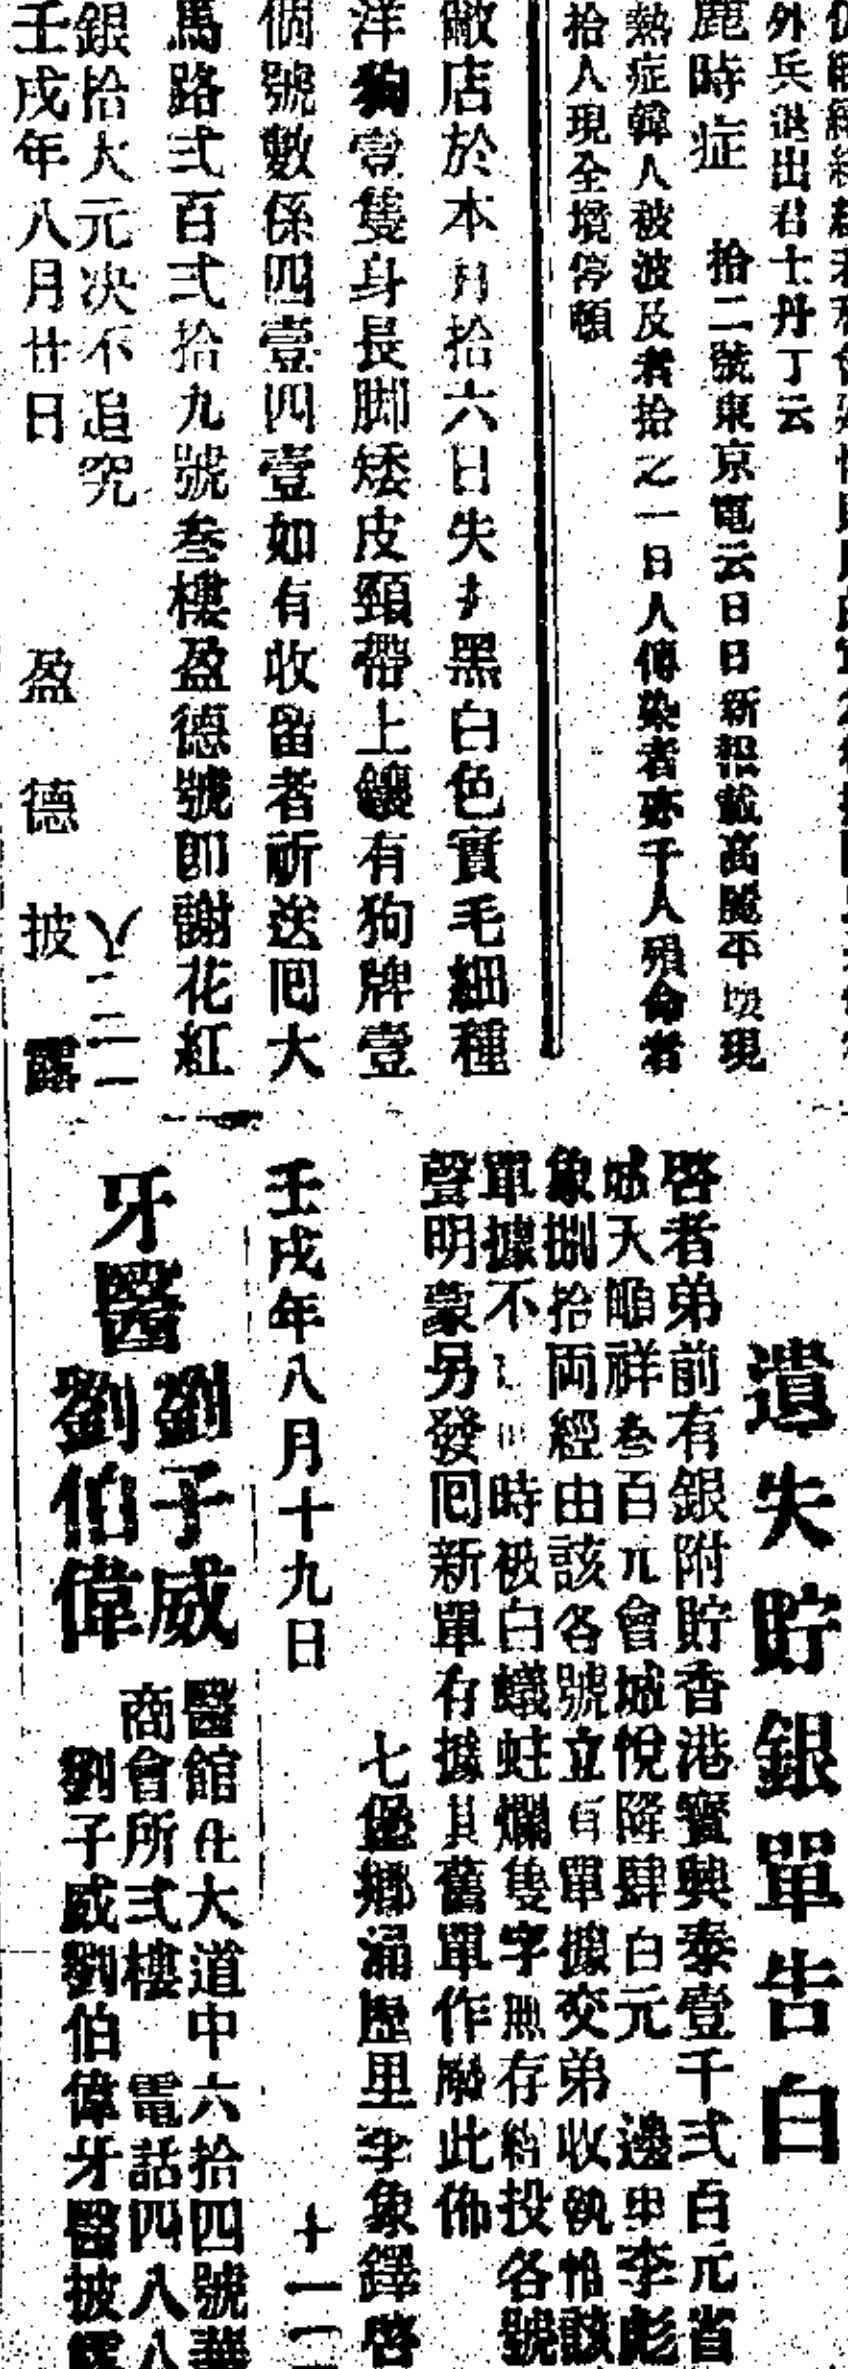 外兵退出君士丹丁云
時症　拾二號東京電云日日新報載高麗平壤現
熱症韓人被波及者拾之一日人傳染者亦千人殞命者
拾人現全境停頓
敝店於本月拾六日失去黑白色實毛細種
洋狗壹隻身長脚矮皮頸帶上鑲有狗牌壹
個號數係四壹四壹如有收留者祈送囘大
馬路弍百弍拾九號叁樓盈德號即謝花紅
銀拾大元決不追究
壬戌年八月廿日　盈德披露
遺失貯銀單告白
啓者弟前有銀附貯香港寶興泰壹千弍百元省
城天順祥叁百元會城悅隆肆百元　邊申李彪
象捌拾両經由該各號立有單據交弟收執怡該
單據不時被白蟻蛀爛隻字無存給投各號
聲明蒙另發囘新單存據其舊單作廢此佈
七堡鄉涌歷里李象鐸啓
壬戌年八月十九日
牙醫
劉子威
劉伯偉
醫館在大道中六拾四號華
商會所弍樓　電話四八八
劉子威劉伯偉牙醫披露